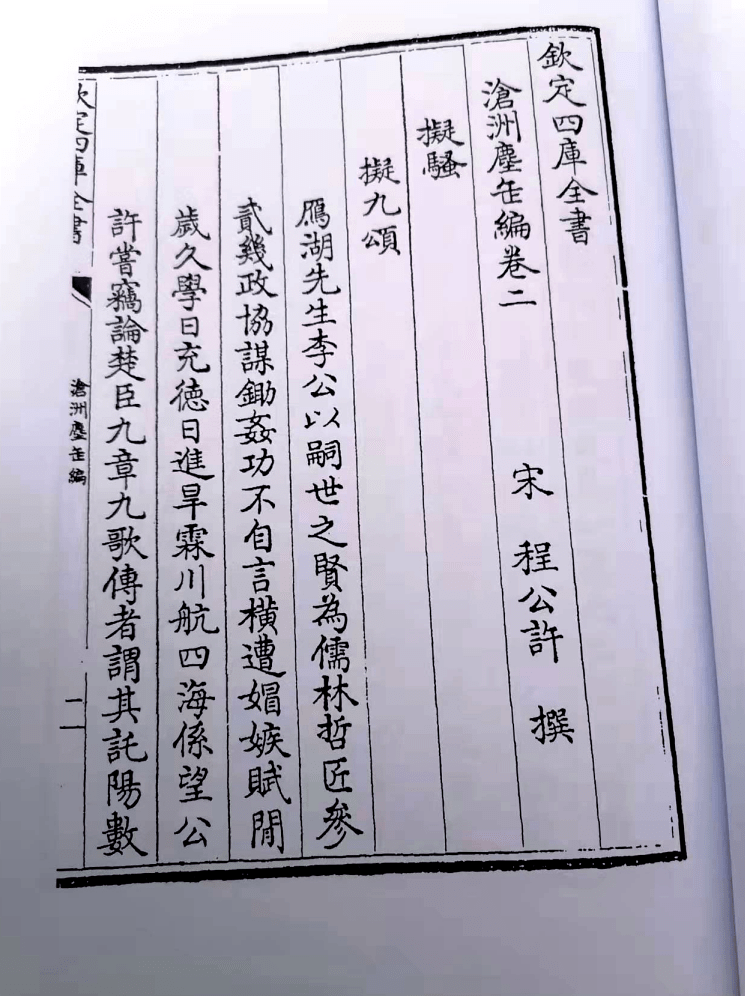 欽定四庫全書
滄洲塵缶編卷二
宋 程公許 撰
擬騷
擬九頌
鴈湖先生李公以嗣世之賢為儒林哲匠參
貳幾政協謀鋤姦功不自言橫遭媢嫉賦閒
歲久學日充徳日進旱霖川航四海係望公
許嘗竊論楚臣九章九歌傳者謂其託陽數
欽定四庫全書
滄洲塵缶編